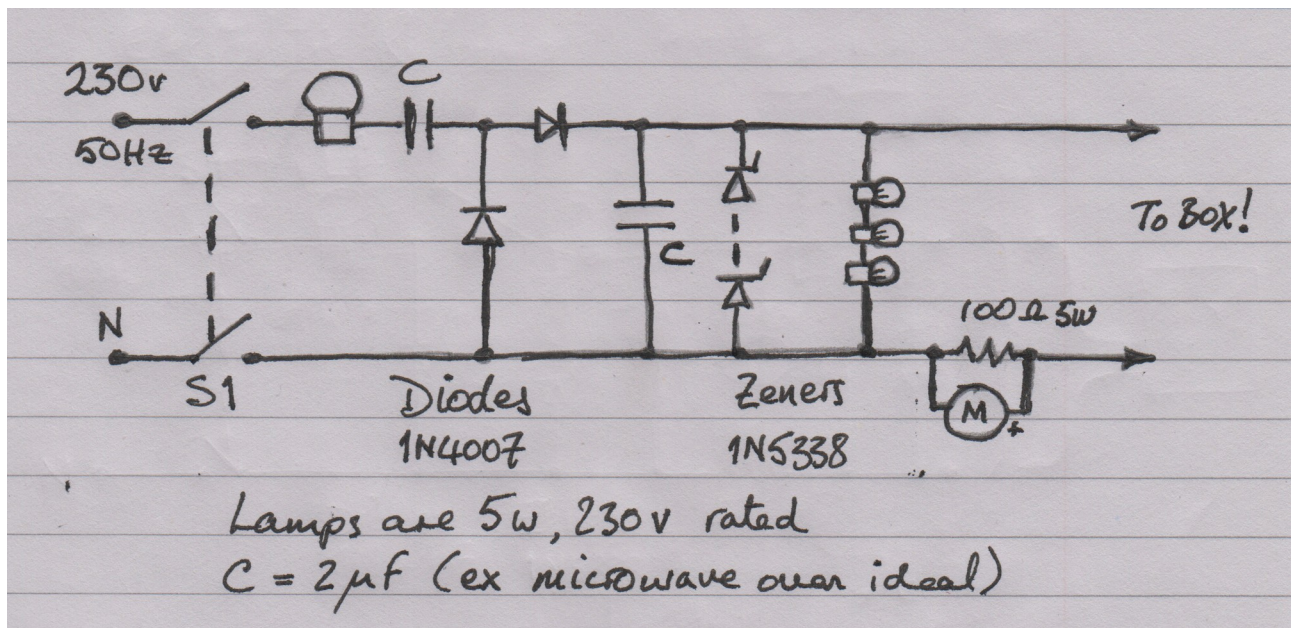 230v
50Hz
C
C
To Box!
N
S1
100Ω 5w
M
+
Diodes
1N4007
Zeners
1N5338
Lamps are 5w, 230v rated
C = 2µf (ex microwave oven ideal)